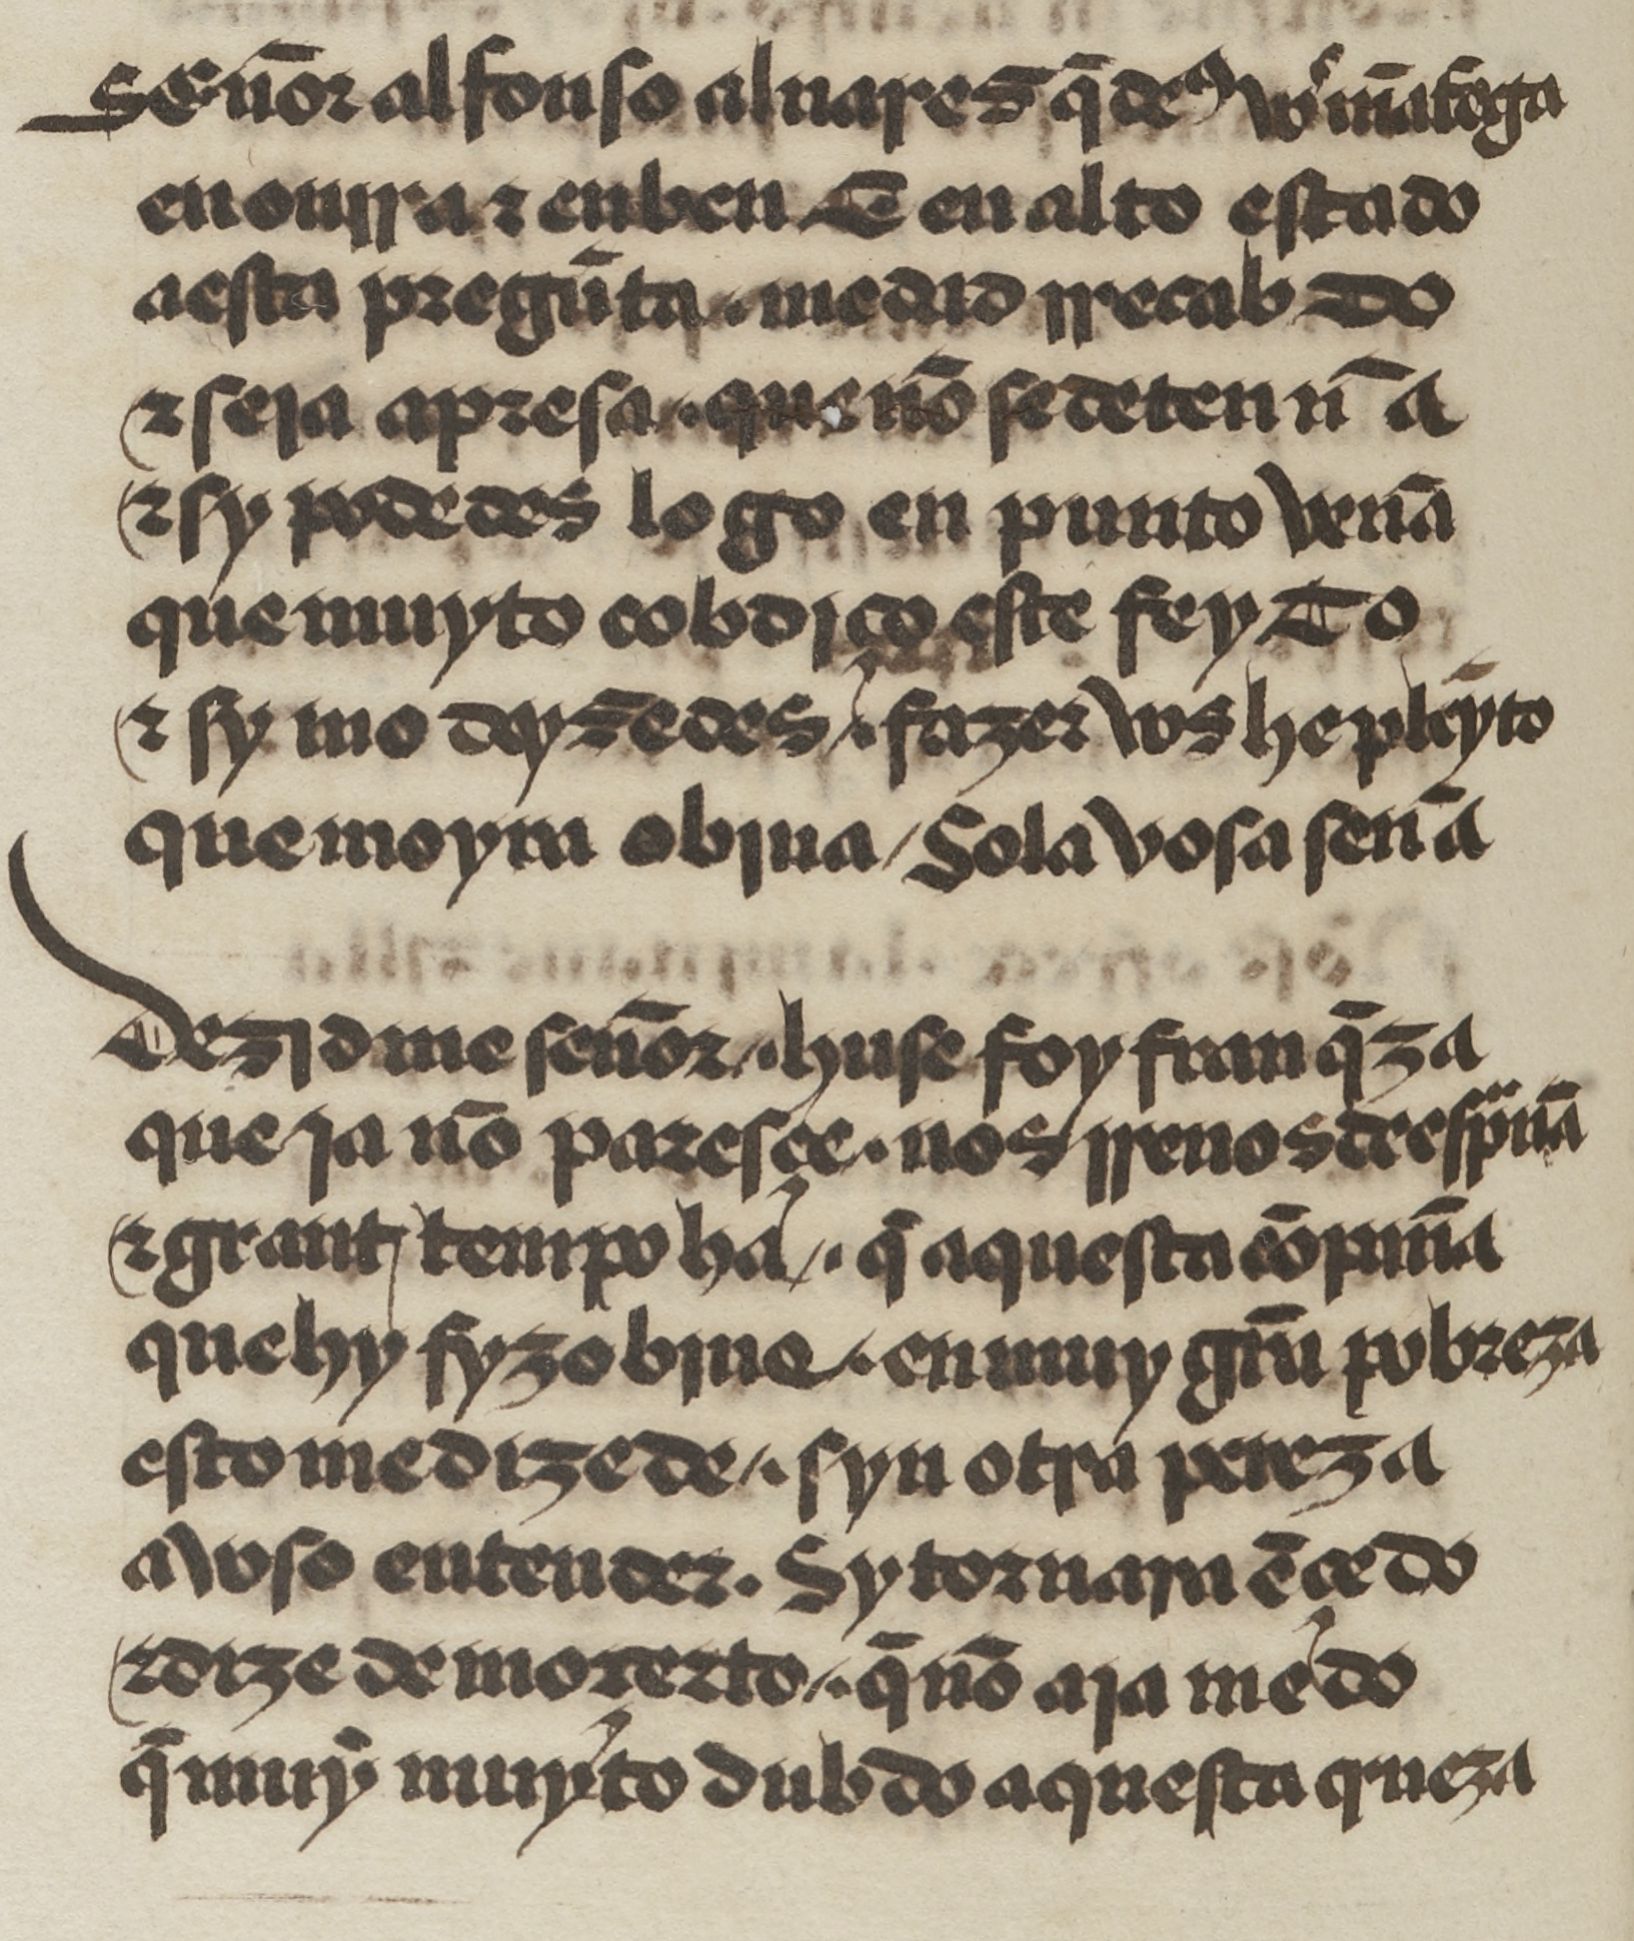 Señor alfonso aluares q̄ de⁹ vos mãtega
en onrra ⁊ en ben E en alto estado
a esta pregũta . me dad rrecabdo
⁊ seia apresa . que nõ se detenñ a
⁊ sy podedes logo en punto veñã
que muyto cobdiço este feyto
⁊ sy mo dyz̄edes . fazer vos he pleỹto
que moyra obiua / So la vosa señã
Dezidme señor . hu se foy franq̄za
que ia nõ paresçe . nos rrenos de espãnã
⁊ grant tempo ha . q̄ aquesta cõpañã
que hy fyzo biue . en muy grã pobreza
esto me dizede . syn otra pereza
a voso entender . Sy tornara ẽ çedo
⁊ dizedemo terto . q̄ nõ aia medo
q̄ muỹ muyto dubdo aquesta queza